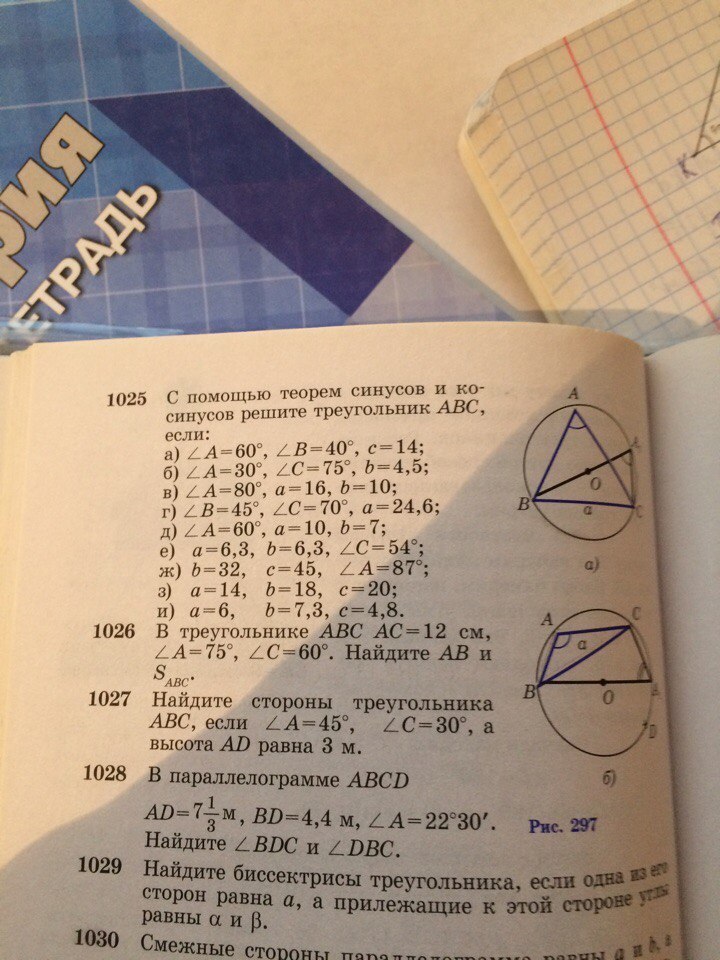 рия
ЕТРАДЬ
K
1025 С помощью теорем синусов и ко-
синусов решите треугольник ABC,
если:
а) ∠A=60°, ∠B=40°, c=14;
б) ∠A=30°, ∠C=75°, b=4,5;
в) ∠A=80°, a=16, b=10;
г) ∠B=45°, ∠C=70°, a=24,6;
д) ∠A=60°, a=10, b=7;
е) a=6,3, b=6,3, ∠C=54°;
ж) b=32, c=45, ∠A=87°;
з) a=14, b=18, c=20;
и) a=6, b=7,3, c=4,8.
1026 В треугольнике ABC AC=12 см,
∠A=75°, ∠C=60°. Найдите AB и
S_ABC.
1027 Найдите стороны треугольника
ABC, если ∠A=45°, ∠C=30°, а
высота AD равна 3 м.
1028 В параллелограмме ABCD
AD=7 1/3 м, BD=4,4 м, ∠A=22°30′.
Найдите ∠BDC и ∠DBC.
1029 Найдите биссектрисы треугольника, если одна из его
сторон равна a, а прилежащие к этой стороне углы
равны α и β.
1030 Смежные стороны параллелограмма равны a и b, а
A
A
O
B
a
C
а)
A
C
a
B
O
A
D
б)
Рис. 297